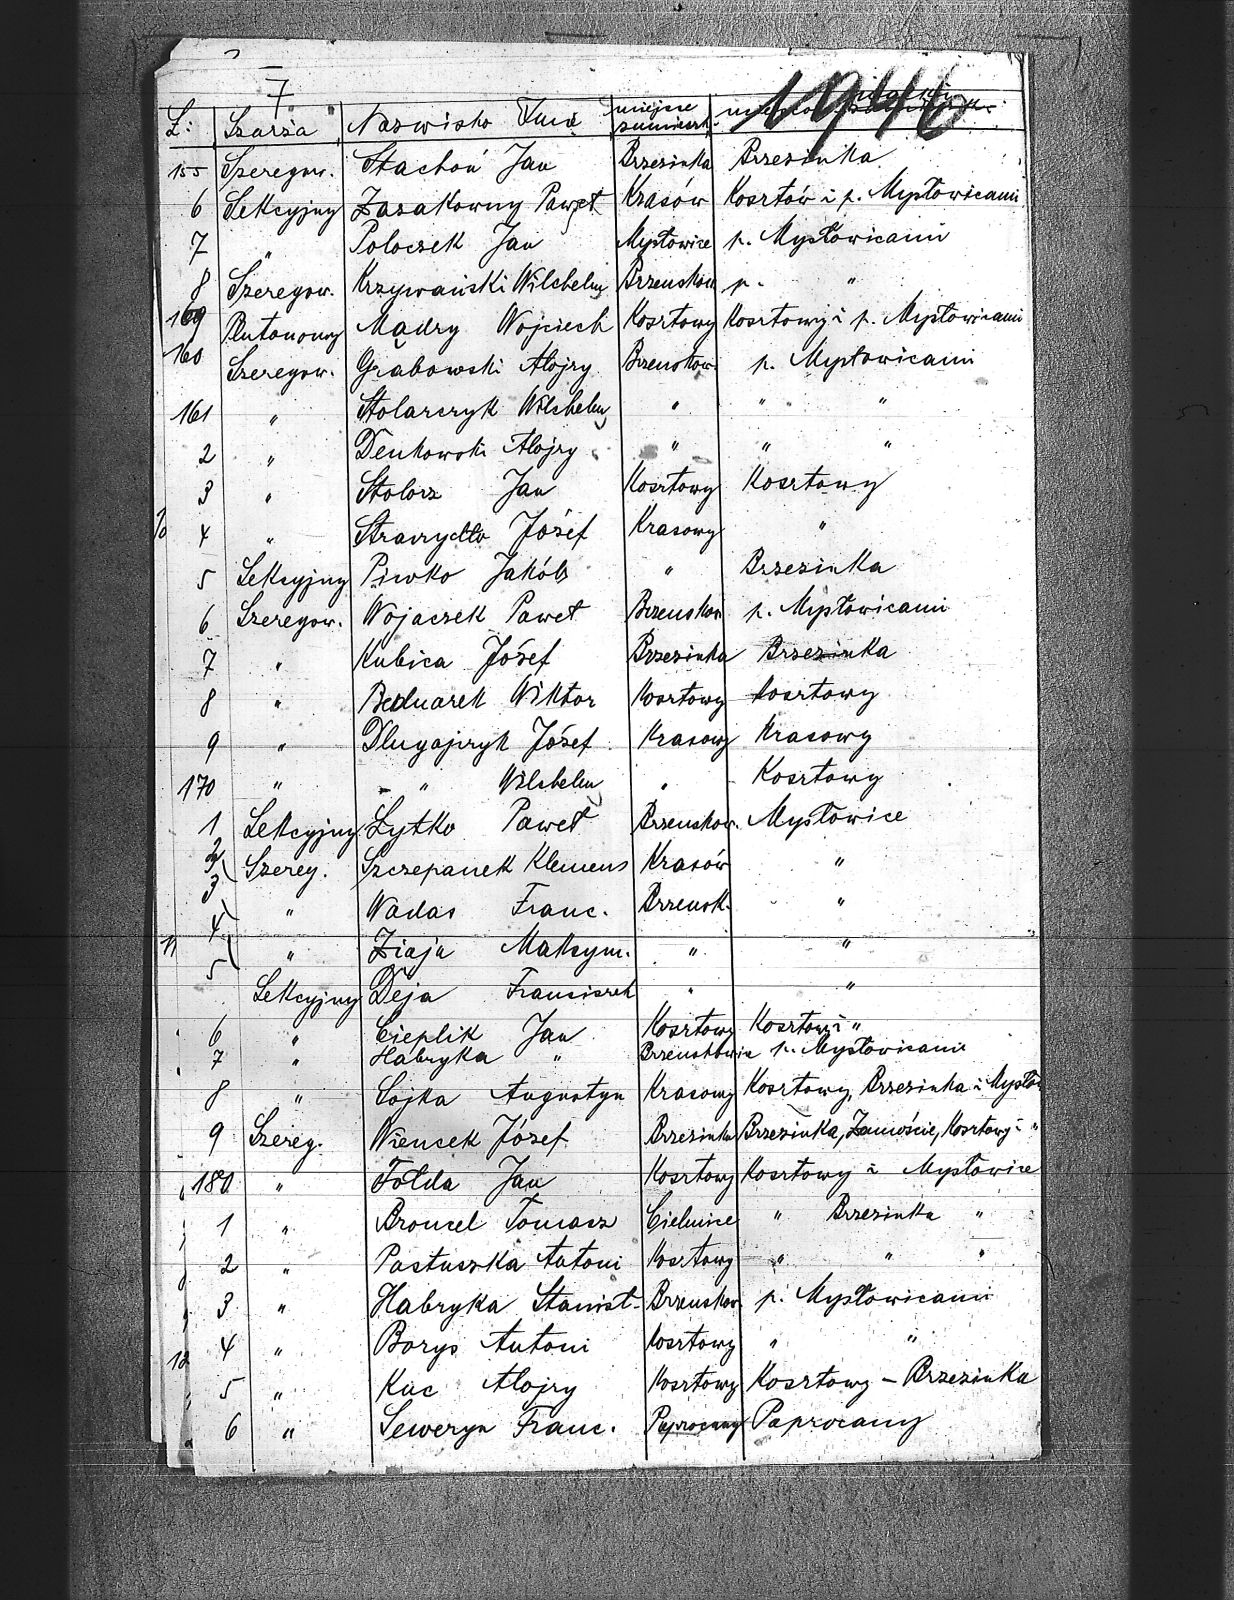 7
1946
L: Szarża Nazwisko Imię miejsce zamieszk.
155 Szeregow. Stachoń Jan Brzezinka Brzezinka
6 Sekcyjny Zasakowny Paweł Krasów Kosztów i p. Mysłowicami
7 " Poloczek Jan Mysłowice p. Mysłowicami
8 Szeregow. Krzywański Wilchelm Brzenskow p. "
169 Plutonowy Mądry Wojciech Kosztowy Kosztowy i p. Mysłowicami
160 Szeregow. Grabowski Alojzy Brzenskow. p. Mysłowicami
161 " Stolarczyk Wilchelm " " "
2 " Denkowski Alojzy " " "
3 " Stolorz Jan Kosztowy Kosztowy
4 " Strawydło Józef Krasowy "
5 Sekcyjny Piwko Jakób " Brzezinka
6 Szeregow. Wojaczek Paweł Brzenskow. p. Mysłowicami
7 " Kubica Józef Brzezinka Brzezinka
8 " Bednarek Wiktor Kosztowy Kosztowy
9 " Dlugajczyk Józef Krasowy Krasowy
170 " " Wilchelm " Kosztowy
1 Sekcyjny Łytko Paweł Brzenskow. Mysłowice
2 Szereg. Szczepanek Klemens Krasów "
3 " Wadas Franc. Brzensk. "
4 " Ziaja Maksym. " "
5 Sekcyjny Deja Franciszek " "
6 " Cieplik Jan Kosztowy Kosztowy i "
7 " Habryka " Brzenskowic p. Mysłowicami
8 " Sojka Augustyn Krasowy Kosztowy, Brzezinka i Mysłow
9 Szereg. Wiencek Józef Brzezinka Brzezinka, Zamoście, Kosztowy i "
180 " Fołda Jan Kosztowy Kosztowy i Mysłowice
1 " Broncel Tomasz Cielmice " Brzezinka "
2 " Pastuszka Antoni Kosztowy " " "
3 " Habryka Stanisł. Brzenskow. p. Mysłowicami
4 " Borys Antoni Kosztowy " "
5 " Kuc Alojzy Kosztowy Kosztowy - Brzezinka
6 " Seweryn Franc. Paprocany Paprocany